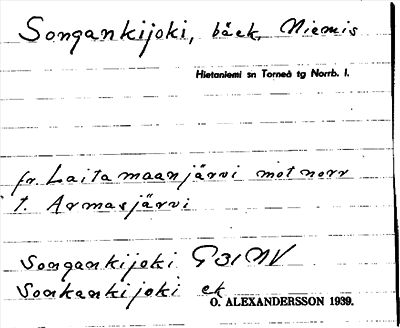 Songankijoki, bäck, Niemis
Hietaniemi sn Torneå tg Norrb. l.
fr. Laitamaanjärvi mot norr
t. Armasjärvi
Songankijoki G31 NV
Sonkankijoki ek
O. ALEXANDERSSON 1939.